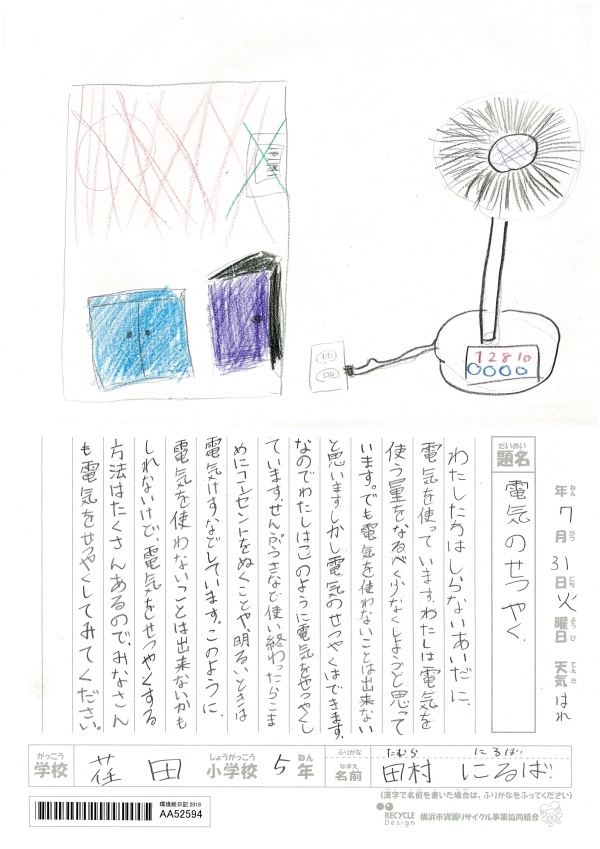 1 2 8 10
0000
年 7月 31日 火曜日 天気 はれ
ねん がつ にち ようび てんき
だいめい
題名
電気のせつやく
わたしたちはしらないあいだに、
電気を使っています。わたしは電気を
使う量をなるべく少なくしようと思って
います。でも電気を使わないことは出来ない
と思います。しかし電気のせつやくはできます。
なのでわたしはこのように電気をせつやくし
ています。せんぷうきなど使い終わったらこま
めにコンセントをぬくことや、明るいときは
電気けすなどしています。このように、
電気を使わないことは出来ないかも
しれないけど、電気をせつやくする
方法はたくさんあるので、みなさん
も電気をせつやくしてみてください。
がっこう しょうがっこう ねん ふりがな たむら にるば
学校 荏田 小学校 5年 なまえ 名前 田村 にるば
(漢字で名前を書いた場合は、ふりがなをふってください)
環境絵日記 2018
AA52594
RECYCLE Design 横浜市資源リサイクル事業協同組合